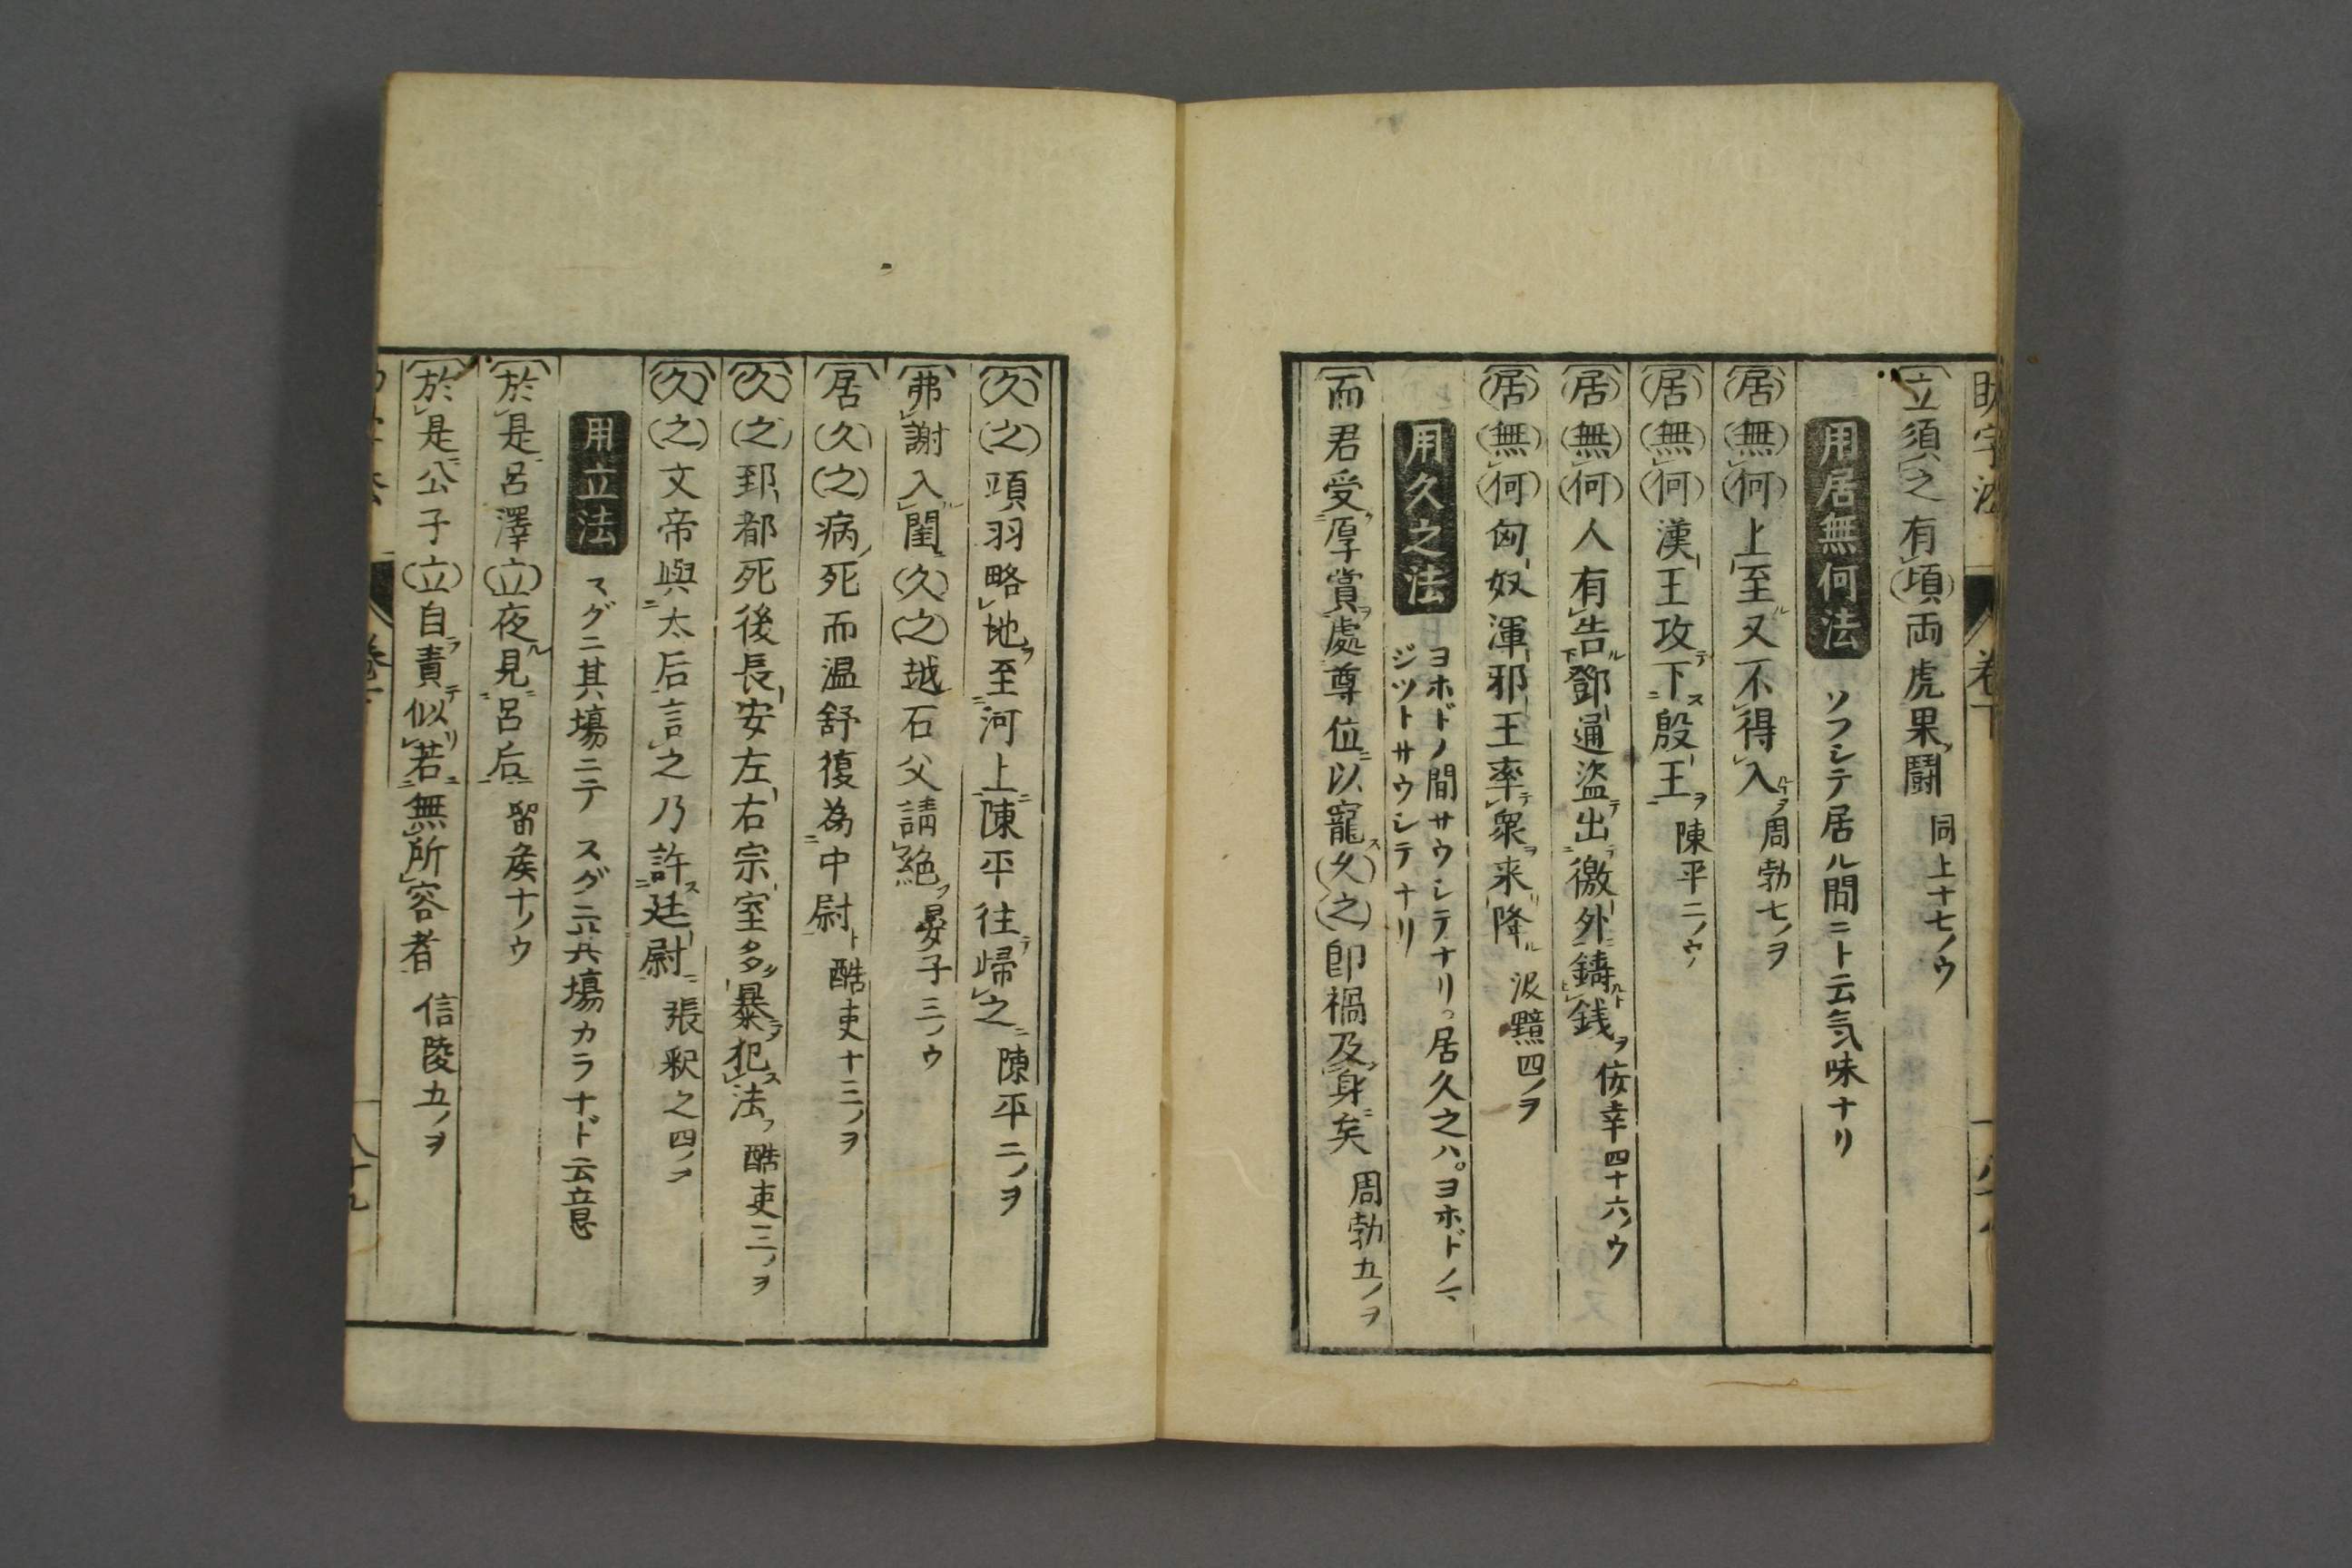 助字法 卷下
立須之有頃両虎果闘 同上十七ノウ
用居無何法 ソフシテ居ル間ニト云気味ナリ
居無何上至又不得入 周勃七ノヲ
居無何漢王攻下殷王 陳平二ノウ
居無何人有告鄧通盗出徼外鋳銭 佞幸四十六ノウ
居無何匈奴渾邪王率衆来降 汲黯四ノヲ
用久之法 ヨホドノ間サウシテナリ。居久之ハ。ヨホドノ間
ジットサウシテナリ
而君受厚賞處尊位以寵久之即禍及身矣 周勃五ノヲ
久之項羽略地至河上陳平往帰之 陳平二ノヲ
弗謝入閨久之越石父請絶 晏子三ノウ
居久之病死而温舒復為中尉 酷吏十三ノヲ
久之郅都死後長安左右宗室多暴犯法 酷吏三ノヲ
久之文帝與太后言之乃許廷尉 張釈之四ノヲ
用立法 スグニ其塲ニテ スグニ其塲カラナド云意
於是呂澤立夜見呂后 留矦十ノウ
於是公子立自責似若無所容者 信陵五ノヲ
八十九